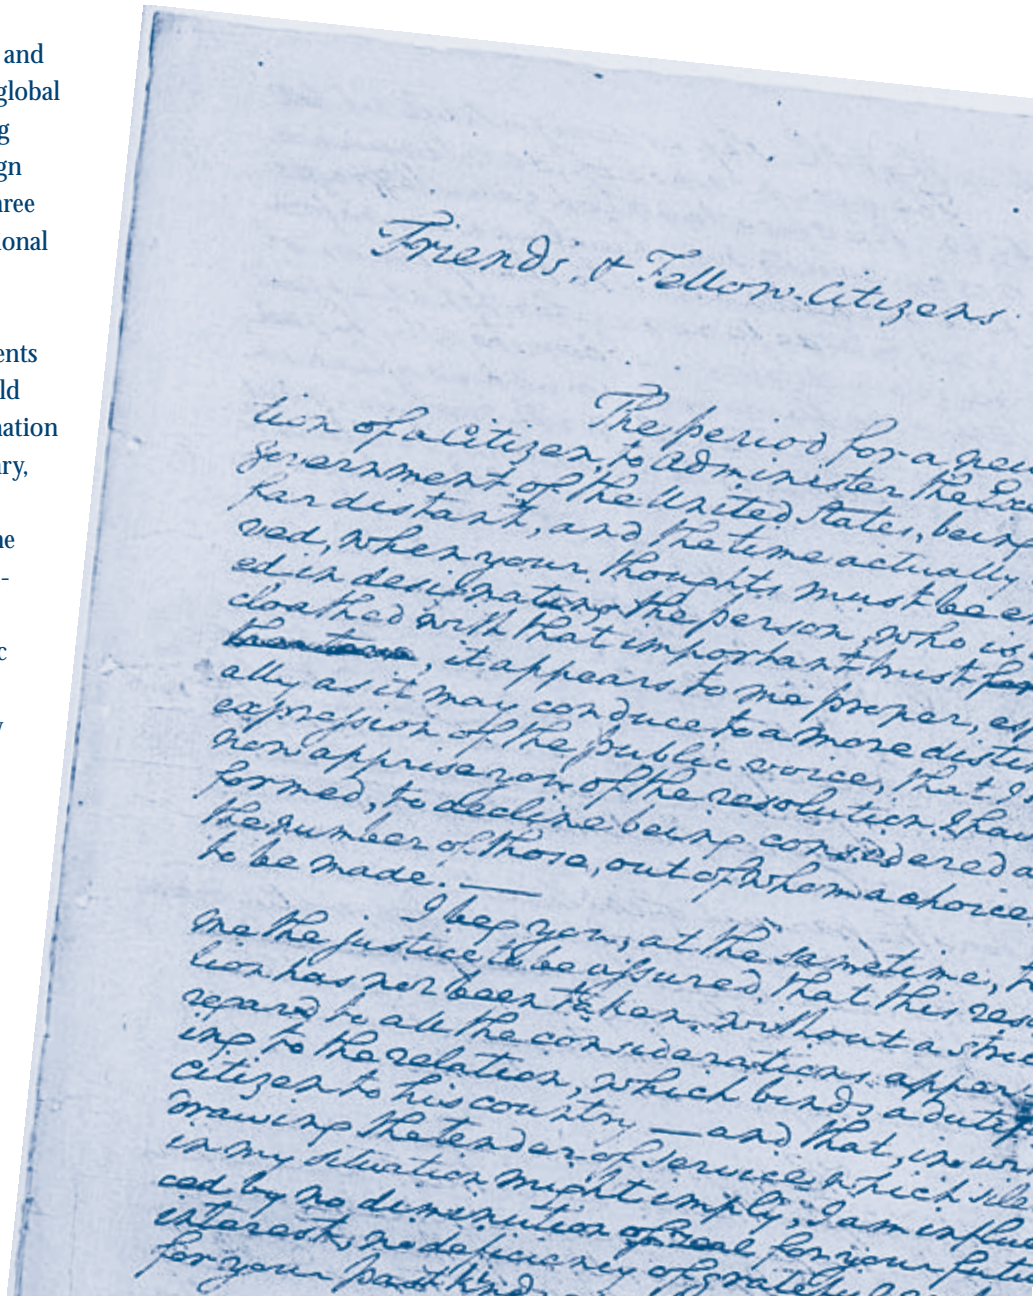 and
global
g
gn
hree
ional
ents
ld
nation
ry,
he
-
c
y
Friends, & Fellow-Citizens
The period for a new
tion of a Citizen, to administer the Exe
government of the United States, being
far distant, and the time actually
ved, when your thoughts must be em
ed in designating the person, who is
cloathed with that important trust for
, it appears to me proper, esp
ally as it may conduce to a more distin
expression of the public voice, that I
now apprise you of the resolution I have
formed, to decline being considered a
the number of those, out of whom a choice
to be made. —
I beg you, at the sametime, t
me the justice to be assured, that this res
tion has not been taken, without a stric
regard to all the considerations apper
ing to the relation, which binds a dutif
citizen to his country — and that, in wi
drawing the tender of service which sile
in my situation might imply, I am influ
ced by no diminution of zeal for your futu
interest, no deficiency of grateful
for your past kind